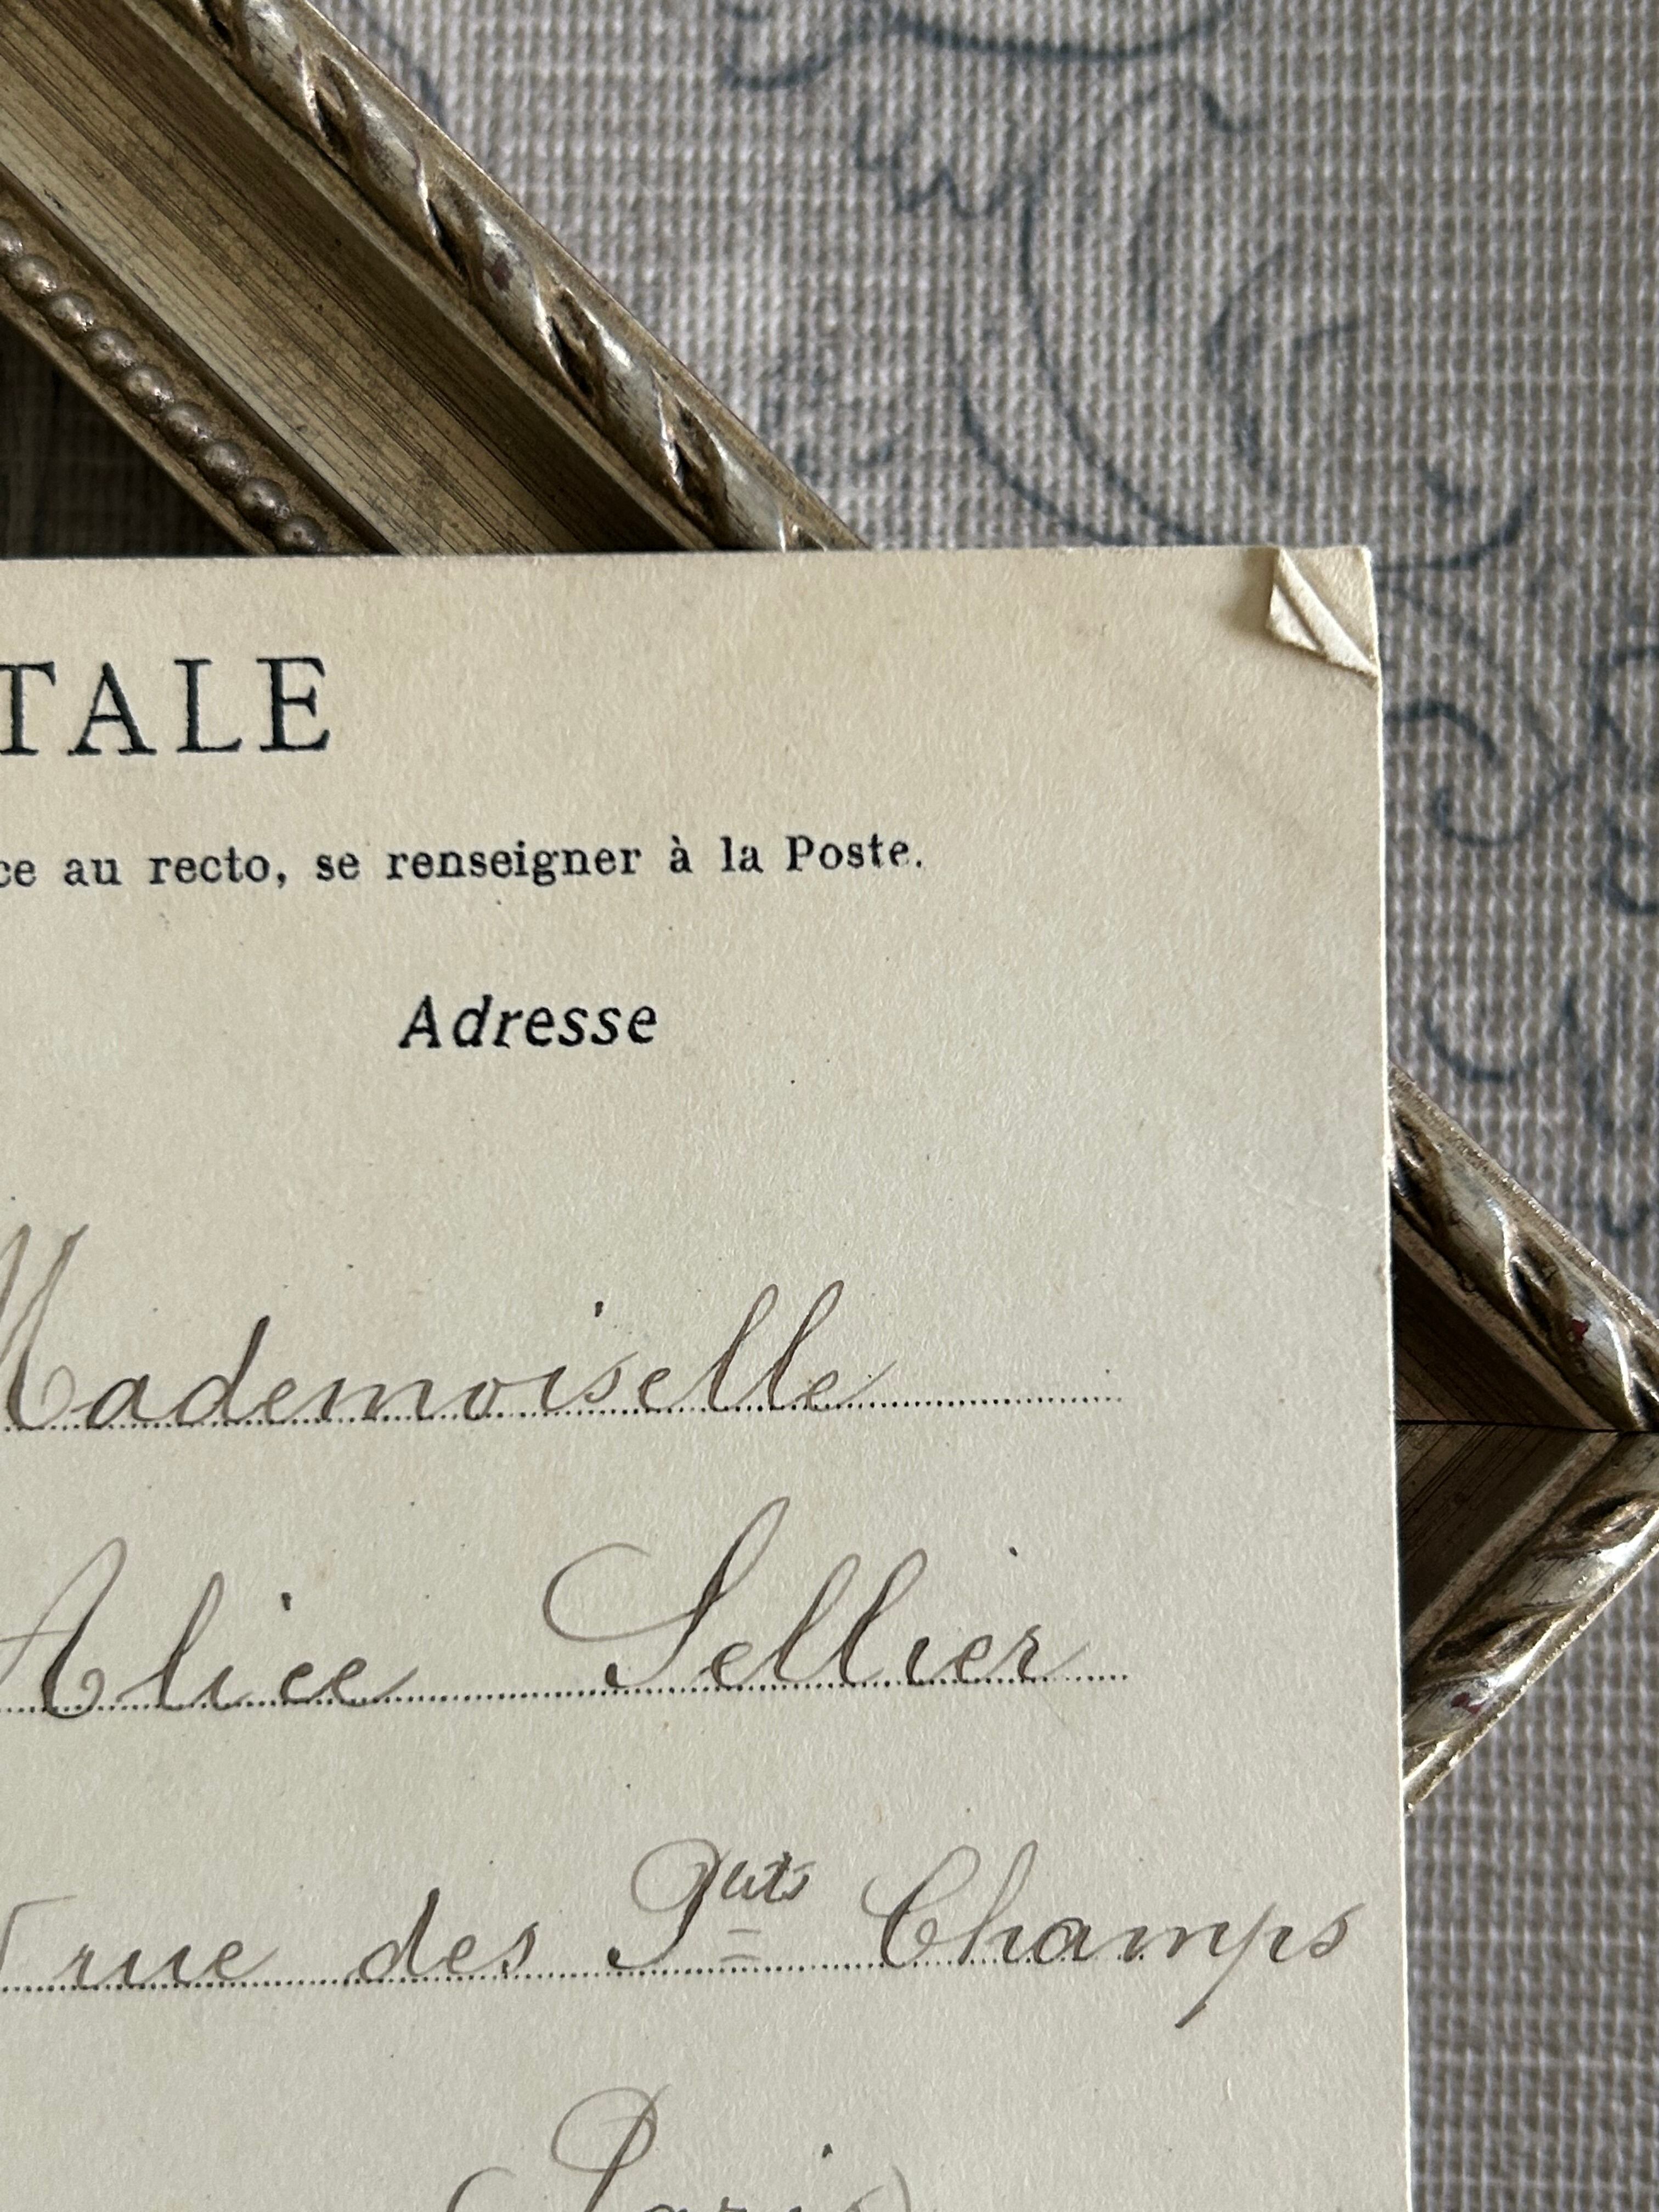 TALE
ce au recto, se renseigner à la Poste.
Adresse
Mademoiselle
Alice Sellier
rue des Ptits Champs
Paris